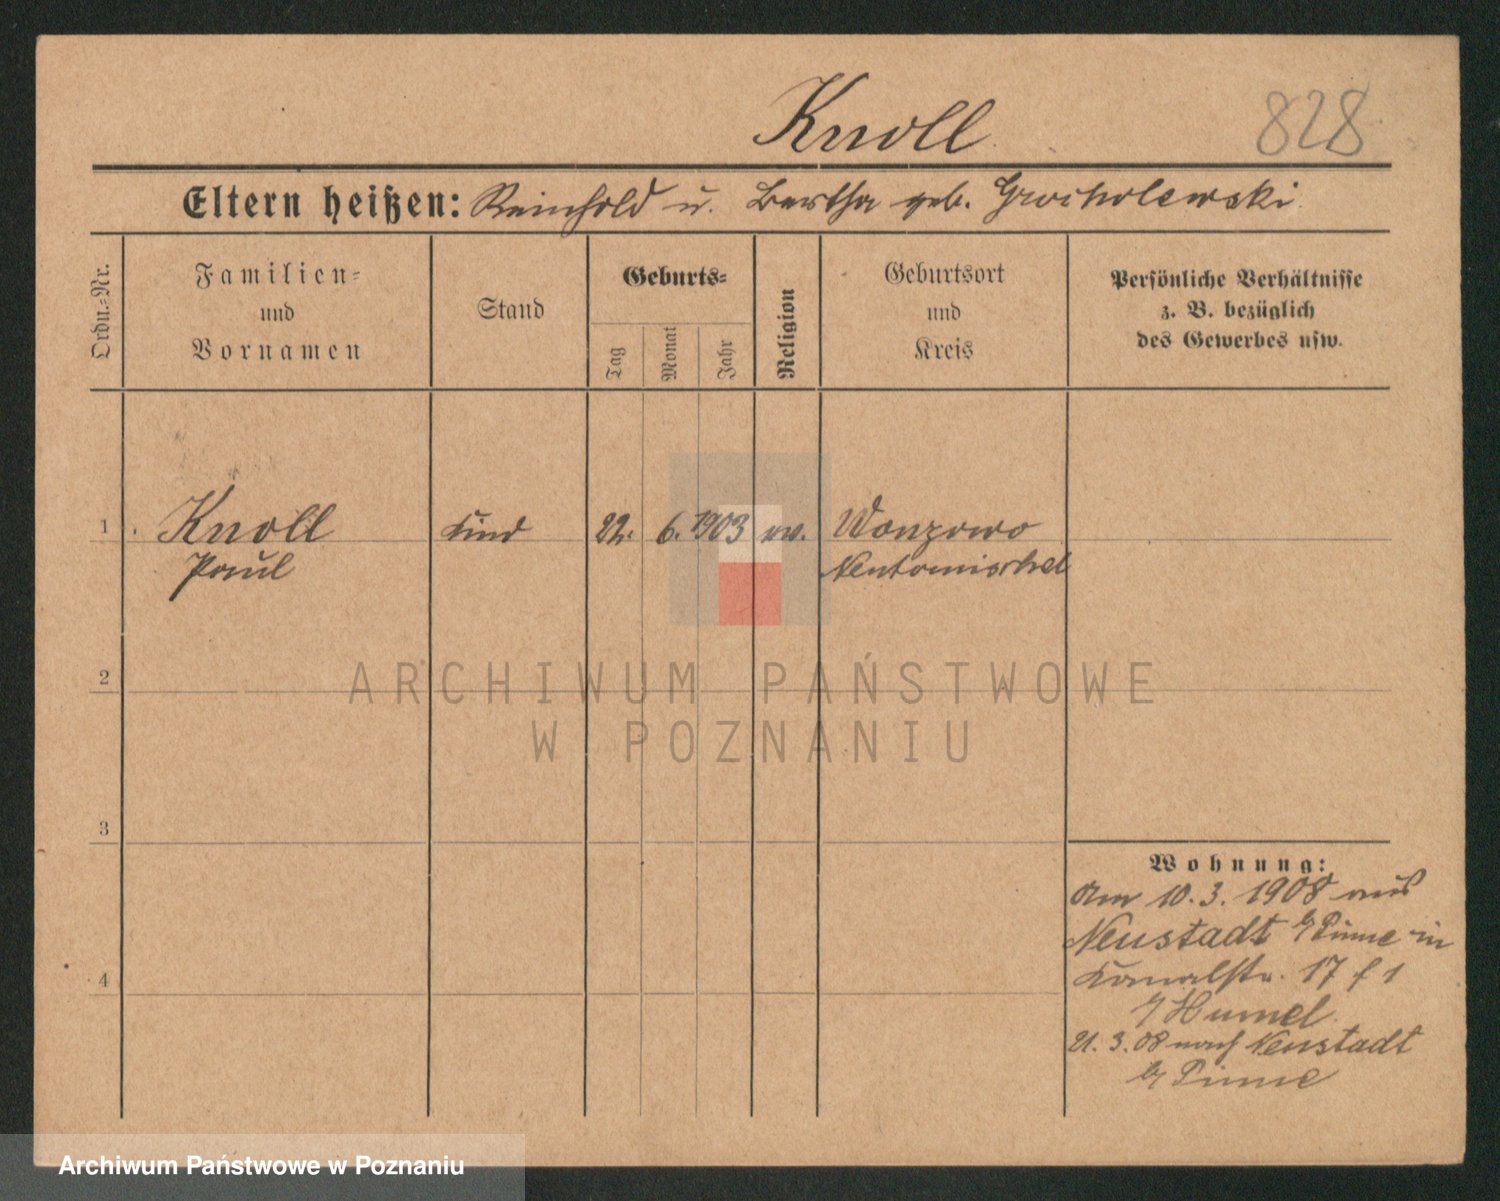 Knoll
828
Eltern heißen: Reinhold u. Bertha geb. Grocholewski
Ordn.-Nr.
Familien-
und
Vornamen
Stand
Geburts-
Tag
Monat
Jahr
Religion
Geburtsort
und
Kreis
Persönliche Verhältnisse
z. B. bezüglich
des Gewerbes usw.
1 Knoll Kind 22. 6. 1903 ev. Wonzowo
Paul Neutomischel
2
ARCHIWUM PAŃSTWOWE
W POZNANIU
3
Wohnung:
Am 10.3.1908 aus
Neustadt b/Pinne in
Kanalstr. 17 f 1
b/ Humel.
4
21.3.08 nach Neustadt
b/ Pinne
Archiwum Państwowe w Poznaniu